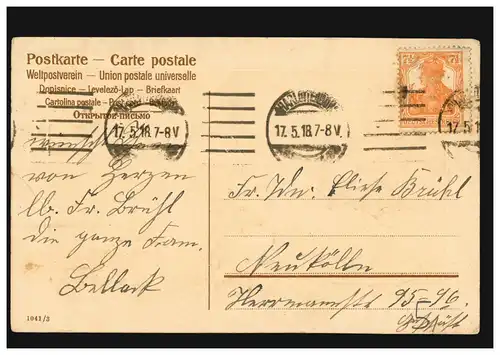 Postkarte — Carte postale
Weltpostverein — Union postale universelle
Dopisnice — Levelező-Lap — Briefkaart
Cartolina postale —
Открытое письмо
17.5.18.7-8V
17.5.18.7-8V.
17.5.18
7½
von Herzen
lb. Fr. Brühl
die ganze Fam.
Bellack
Fr. Idw. Eliese Brühl
Neukölln
Herrmannstr 95-96.
1041/3